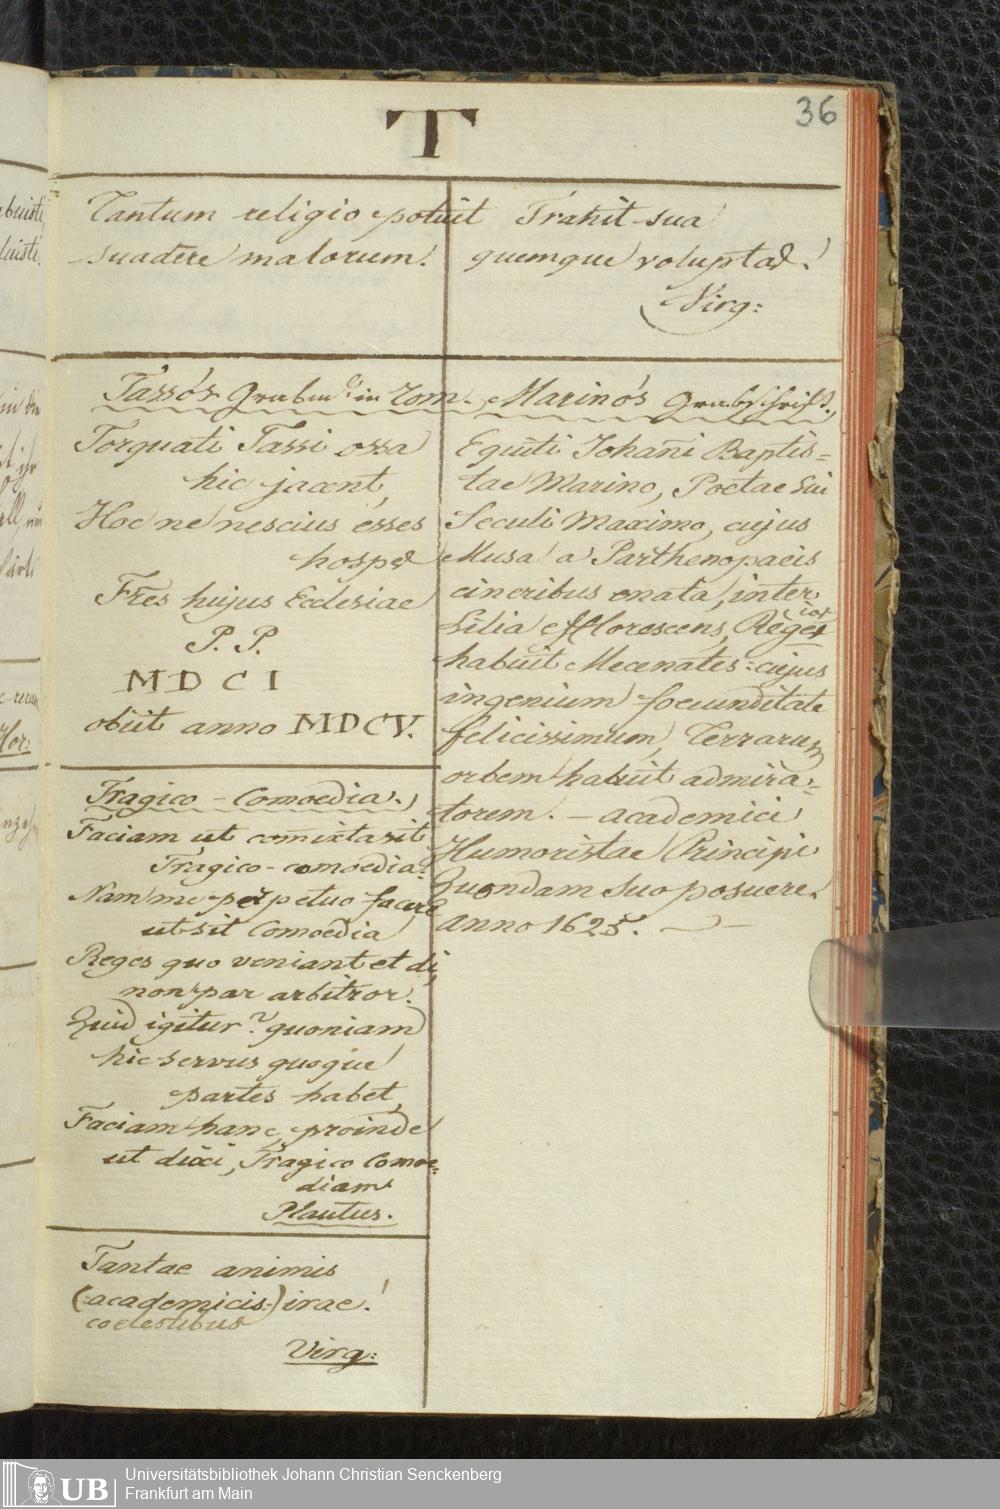 36
T
Tantum religio potuit
suadere malorum!
Trahit sua
quemque voluptas!
Virg:
Tasso's Grabm. in Rom.
Torquati Tassi ossa
hic jacent,
Hoc ne nescius esses
hospes
Fr̄es hujus Ecclesiae
P. P.
MDCI
obiit anno MDCV.
Tragico-Comoedia.
Faciam ut com̄ixta sit
Tragico-comoedia.
Nam me perpetuo facere
ut sit Comoedia
Reges quo veniant et di,
non par arbitror.
Quid igitur? quoniam
hic servus quoque
partes habet,
Faciam hanc, proinde
ut dixi, Tragico Comoe=
diam
Plautus.
Tantae animis
(:academicis:) irae!
coelestibus
Virg:
Marino's Grabschrift.
Equiti Johan̄i Baptis=
tae Marino, Poetae sui
Seculi Maximo, cujus
Musa a Parthenopaeis
cineribus enata, inter
Lilia efflorescens, Reges
habuit Mecenates: cujus
ingenium foecunditate
felicissimum, Terrarum
orbem habuit admira=
torem. - academici
Humoristae Principi
Quondam suo posuere.
anno 1625.
buisti,
Hor:
UB
Universitätsbibliothek Johann Christian Senckenberg
Frankfurt am Main